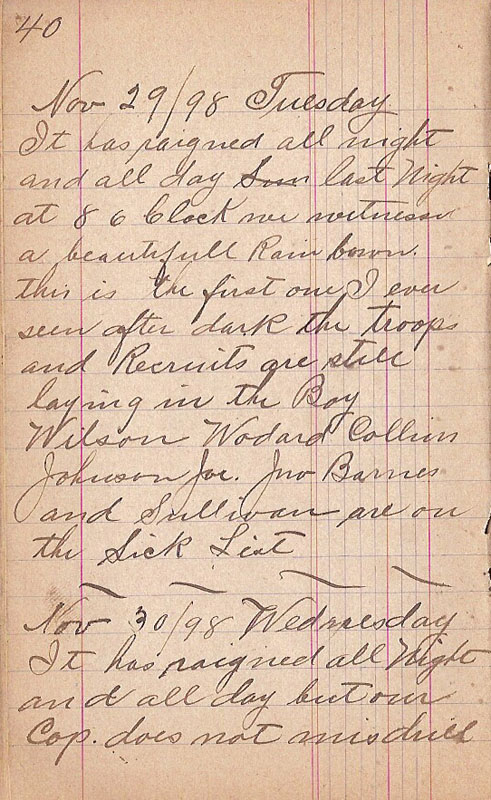 40
Nov 29/98 Tuesday
It has raigned all night
and all day Sun last Night
at 8 o Clock we witness
a beautifull Rain bown.
this is the first one I ever
seen after dark the troops
and Recruits are still
laying in the Bay
Wilson Wodard Collins
Johnson Joe. Jno Barnes
and Sullivan are on
the Sick List
Nov 30/98 Wednesday
It has raigned all Night
and all day but our
Cop. does not mis drill